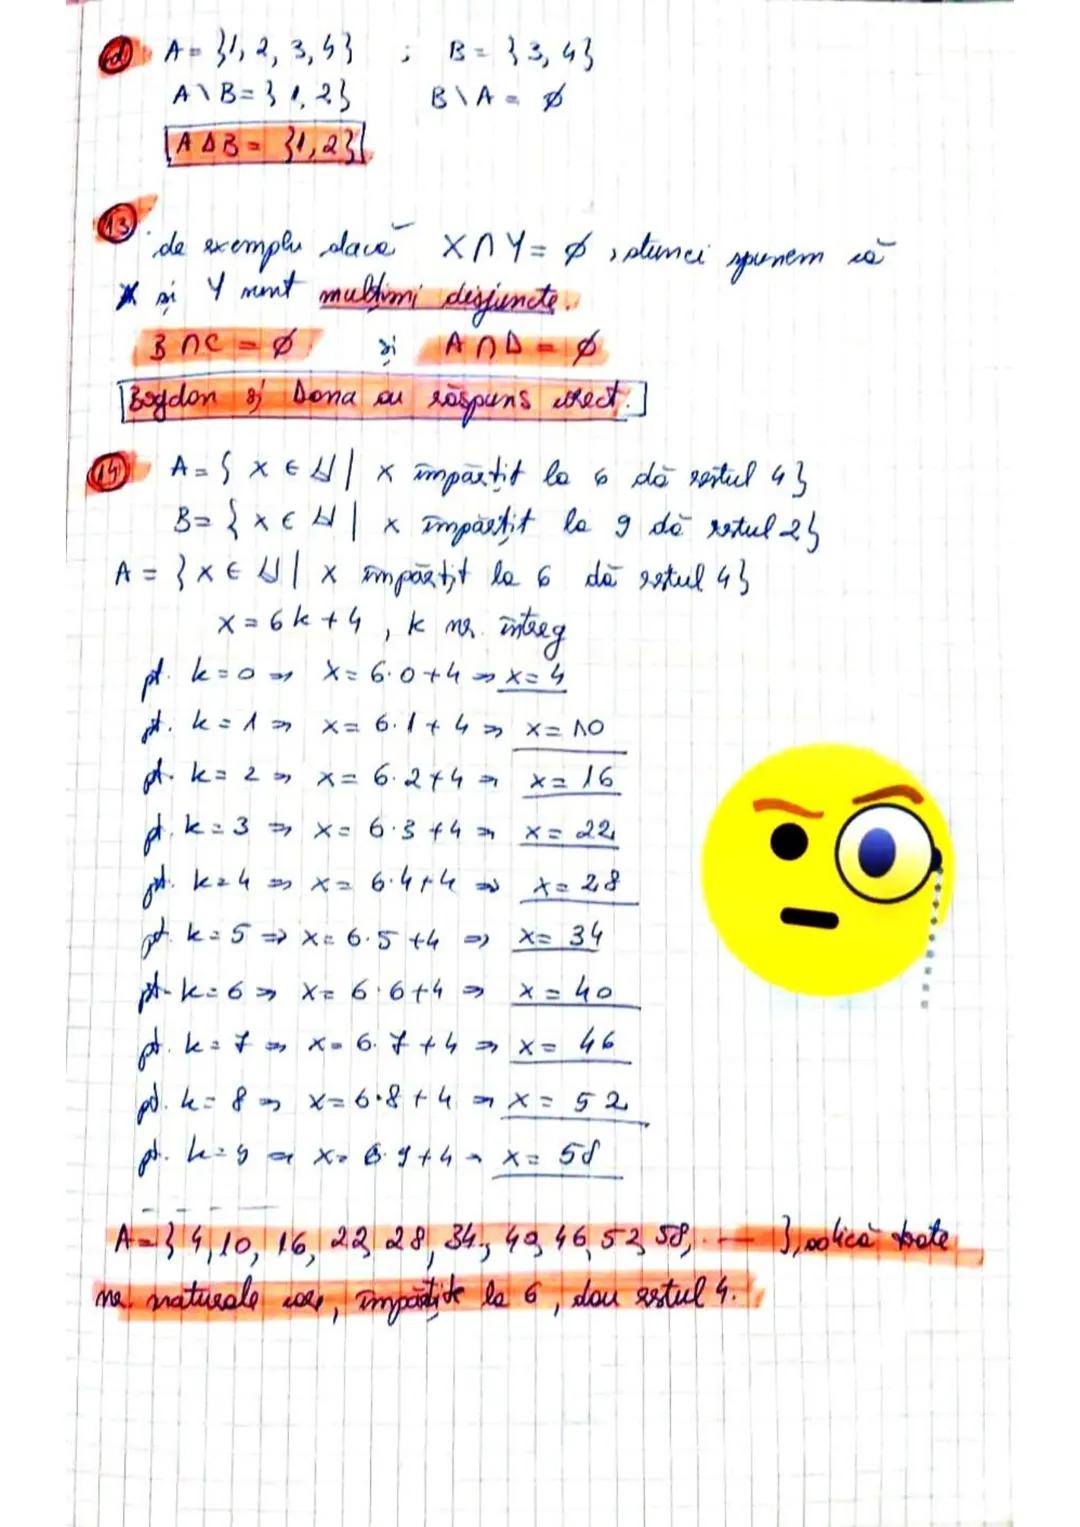 d) A = {1, 2, 3, 4} ; B = {3, 4}
A \ B = {1, 2} B \ A = ∅
A Δ B = {1, 2}
13. de exemplu dacă X ∩ Y = ∅, atunci spunem că
X și Y sunt mulțimi disjuncte.
B ∩ C = ∅ și A ∩ D = ∅
Bogdan și Dana au răspuns corect.
14 A = { x ∈ N | x împărțit la 6 dă restul 4}
B = { x ∈ N | x împărțit la 9 dă restul 2}
A = { x ∈ N | x împărțit la 6 dă restul 4}
x = 6k + 4, k nr. întreg
pt. k = 0 => x = 6·0+4 => x = 4
pt. k = 1 => x = 6·1+4 => x = 10
pt. k = 2 => x = 6·2+4 => x = 16
pt. k = 3 => x = 6·3+4 => x = 22
pt. k = 4 => x = 6·4+4 => x = 28
pt. k = 5 => x = 6·5+4 => x = 34
pt. k = 6 => x = 6·6+4 => x = 40
pt. k = 7 => x = 6·7+4 => x = 46
pt. k = 8 => x = 6·8+4 => x = 52
pt. k = 9 => x = 6·9+4 => x = 58
A = { 4, 10, 16, 22, 28, 34, 40, 46, 52, 58, ... }, adică toate
nr. naturale care, împărțite la 6, dau restul 4.